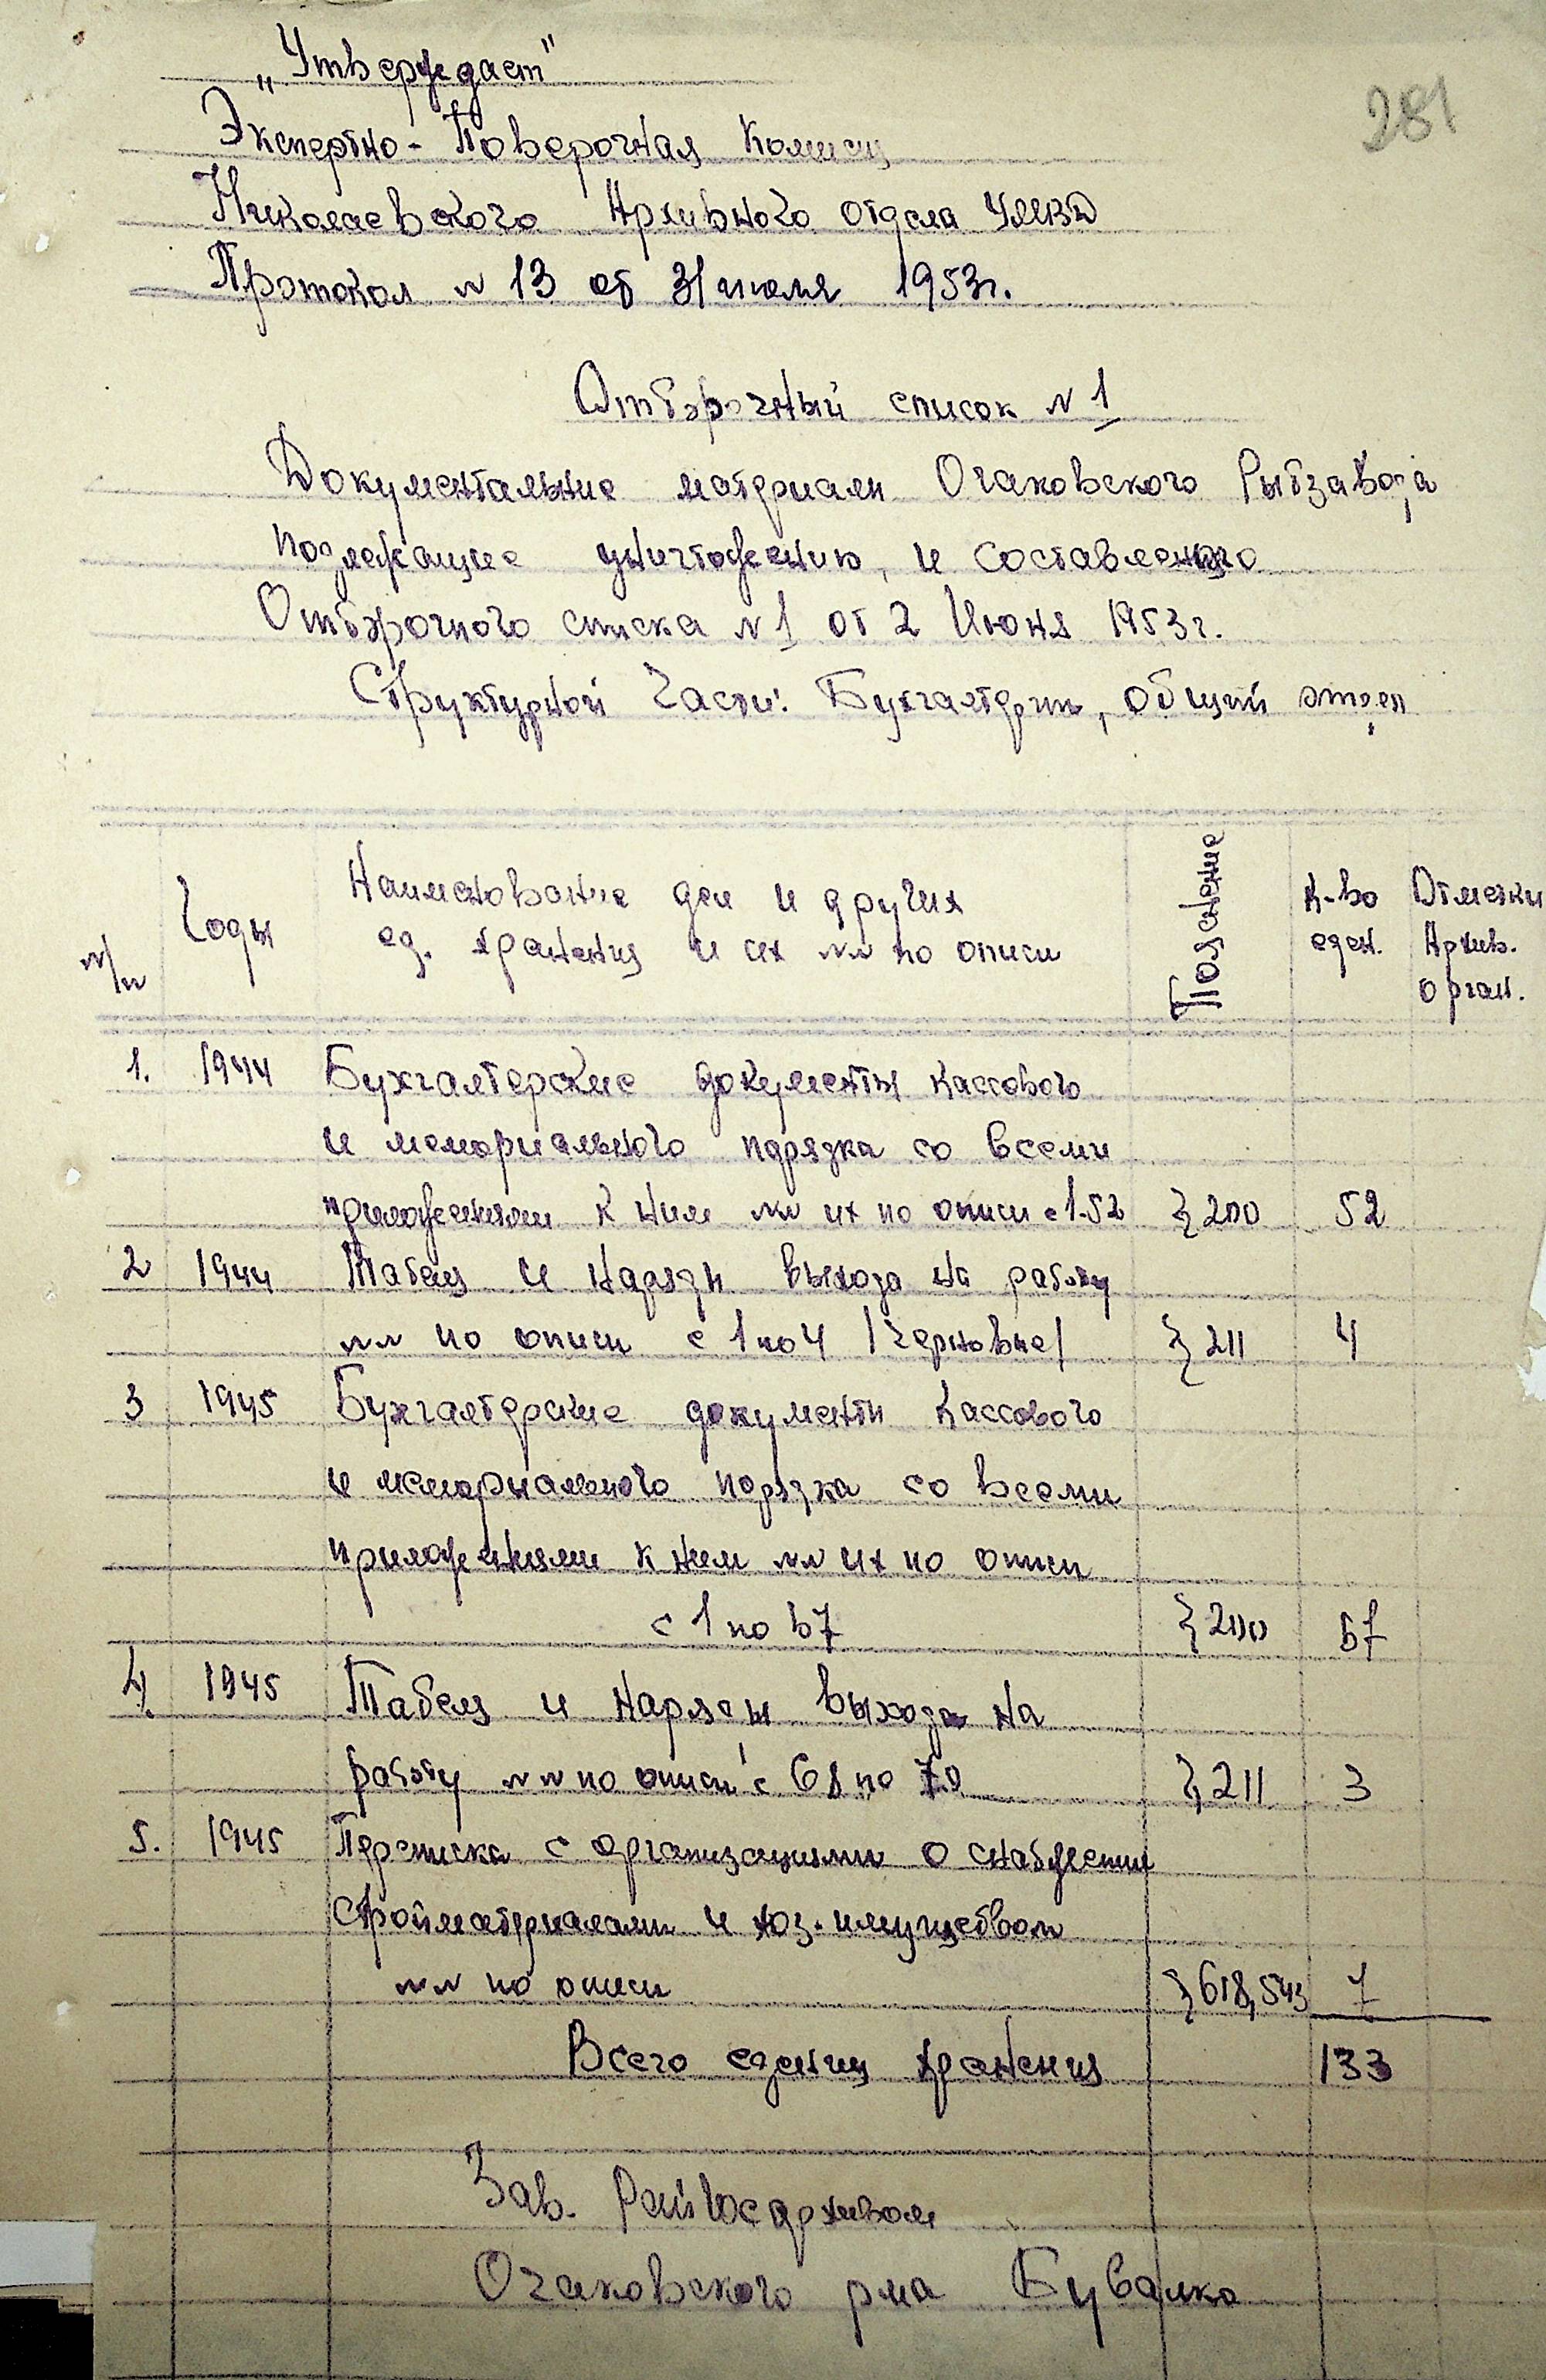 281
„Утверждаст"
Экспертно- Поверочная Комисия
Николаевского Архивного отдела УМВД
Протокол № 13 от 31 июля 1953г.
Отборочный список № 1
Документальние материали Очаковского Рыбзавода
подлежащие уничтожению, и составленого
Отборочного списка № 1 от 2 Июня 1953г.
Структурной части: Бухгалтерии, общий отдел
№/п Годы Наименование дел и других ед. хранения и их №№ по описи Пояснение К-во еден. Отметки Архив. Орган.
1. 1944 Бухгалтерские документы кассового
и мемориального порядка со всеми
приложениями к ним №№ их по описи с 1-52 § 200 52
2 1944 Табеля и наряди выхода на работу
№№ по описи с 1 по 4 /черновие/ § 211 4
3 1945 Бухгалтерские документи кассового
и мемориального порядка со всеми
приложениями к ним №№ их по описи
с 1 по 67 § 200 67
4. 1945 Табеля и наряды выхода на
работу №№ по описи с 68 по 70 § 211 3
5. 1945 Переписка с организациями о снабжении
стройматериалами и хоз. имуществом
№№ по описи § 618,543 7
Всего едениц хранения 133
Зав. Райгосархивом
Очаковского р-на Бувалко